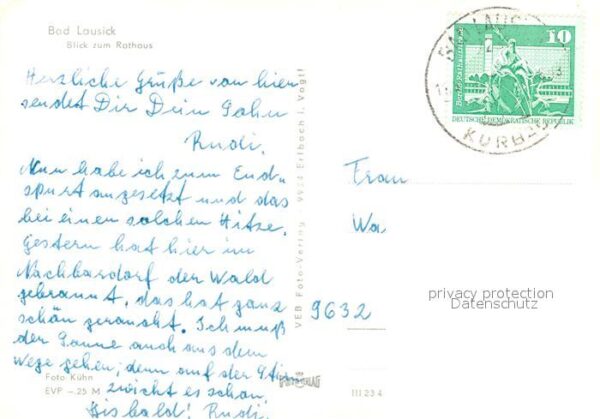 Bad Lausick
Blick zum Rathaus
Herzliche Grüße von hier
sendet Dir Dein Sohn
Rudi.
Nun habe ich zum End-
spurt angesetzt und das
bei einer solchen Hitze.
Gestern hat hier im
Nachbardorf der Wald
gebrannt, das hat ganz
schön geraucht. Ich muß
der Sonne auch aus dem
Wege gehen; denn auf der Stirn
zwickt es schon.
Bis bald! Rudi.
Foto Kühn
EVP -.25 M
VEB Foto-Verlag · 9934 Erlbach i. Vogtl
III 23 4
10
Buch: Rathausstraße
DEUTSCHE DEMOKRATISCHE REPUBLIK
BAD LAUSICK
KURBAD
Frau
Wa
9632
privacy protection
Datenschutz